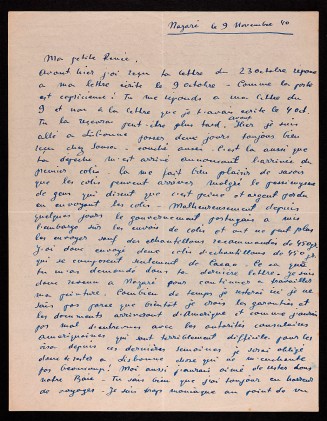 Nazaré le 9 Novembre 40
Ma petite Renée,
Avant hier j'ai reçu ta lettre du 23 octobre reponse
a ma lettre écrite le 9 octobre - Comme la poste
est capricieuse! Tu me reponds a ma lettre du
9 et non à la lettre que je t'avais écrite le 4 oct.
Tu la recevra peut-être plus tard. Hier je suis
allé a Lisbonne passer deux jours toujours bien
reçu chez Sousa - comité amis. C'est la aussi que
ta depêche m'est arrivé annoncant l'arrivée du
premier colis. Ça me fait bien plaisir de savoir
que les colis peuvent arriver malgré le pessimisme
de gens qui disent que c'est peine et argent perdu
en envoyant les colis - Malheureusement depuis
quelques jours le gouvernement portugais a mis
l'embargo sur les envois de colis et ont ne peut plus
les envoyer sauf des échantillons recommandés de 450 gr.
J'ai donc envoyé deux colis d'échantillons de 450 gr.
qui se composent seulement de Cacao. Ce que
tu m'as demandé dans ta dernière lettre. Je suis
donc revenu a Nazaré pour continuer a travailler
ma peinture. Combien de temps je resterai ici je ne
sais pas parce que bientôt je crois les garanties et
les documents arriveront d'Amerique et comme j'aurai
pas mal d'entrevues avec les autorités consulaires
americaines qui sont terriblement difficile pour les
visa depuis ces dernières semaines je serai obligé
de rester a Lisbonne chose qui ne m'enchante
pas beaucoup! Moi aussi j'aurai aimé de rester dans
notre Base - Tu sais bien que j'ai toujours eu horreur
de voyages. Je suis trop maniaque au point de vue